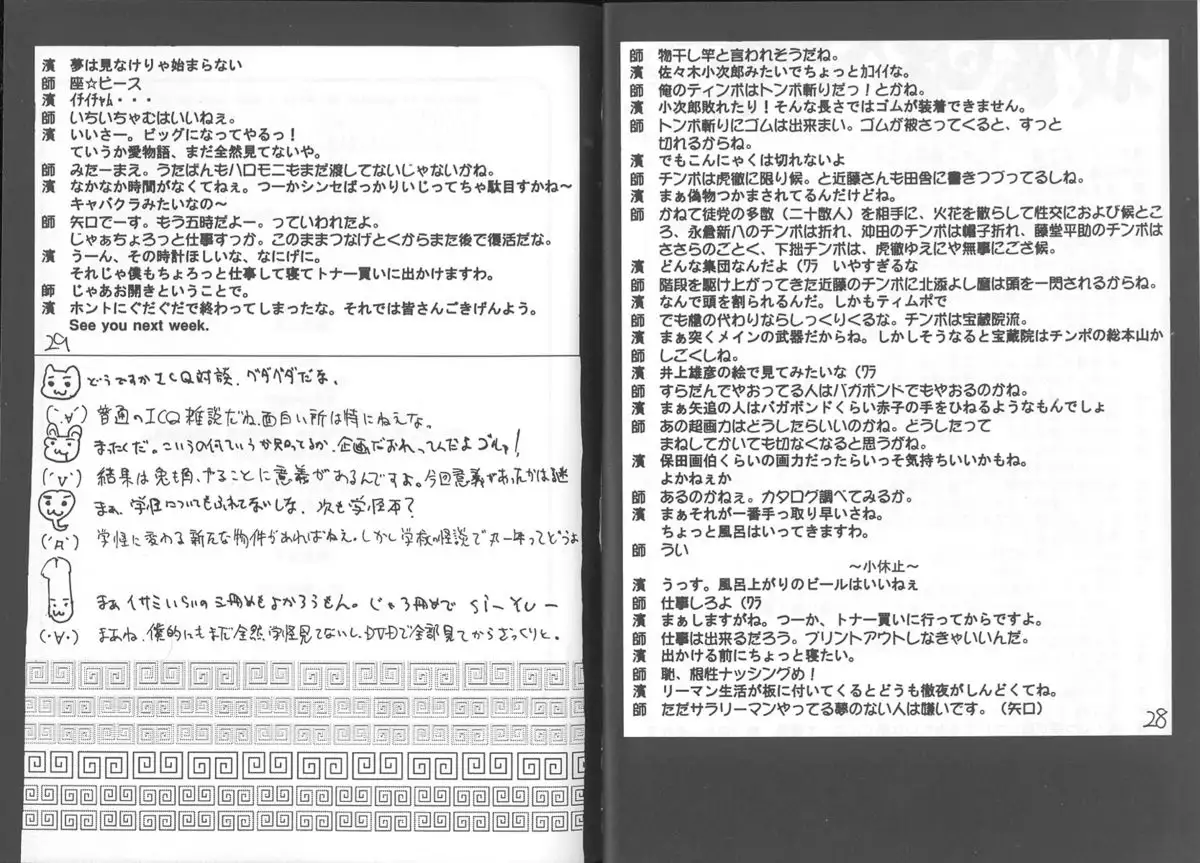 師 物干し竿と言われそうだね。
濱 佐々木小次郎みたいでちょっとｶｺｲｲな。
師 俺のティンポはトンボ斬りだっ！とかね。
濱 小次郎敗れたり！そんな長さではゴムが装着できません。
師 トンボ斬りにゴムは出来まい。ゴムが被さってくると、すっと
切れるからね。
濱 でもこんにゃくは切れないよ
師 チンポは虎徹に限り候。と近藤さんも田舎に書きつづってるしね。
濱 まぁ偽物つかまされてるんだけどね。
師 かねて徒党の多数（二十数人）を相手に、火花を散らして性交におよび候とこ
ろ、永倉新八のチンポは折れ、沖田のチンポは帽子折れ、藤堂平助のチンポは
ささらのごとく、下拙チンポは、虎徹ゆえにや無事にござ候。
濱 どんな集団なんだよ（ﾜﾗ　いやすぎるな
師 階段を駆け上がってきた近藤のチンポに北添よし麿は頭を一閃されるからね。
濱 なんで頭を割られるんだ。しかもティムポで
師 でも槍の代わりならしっくりくるな。チンポは宝蔵院流。
濱 まぁ突くメインの武器だからね。しかしそうなると宝蔵院はチンポの総本山か
師 しごくしね。
濱 井上雄彦の絵で見てみたいな（ﾜﾗ
師 すらだんでやおってる人はバガボンドでもやおるのかね。
濱 まぁ矢追の人はバガボンドくらい赤子の手をひねるようなもんでしょ
師 あの超画力はどうしたらいいのかね。どうしたって
まねしてかいても切なくなると思うがね。
濱 保田画伯くらいの画力だったらいっそ気持ちいいかもね。
よかねぇか
師 あるのかねぇ。カタログ調べてみるか。
濱 まぁそれが一番手っ取り早いさね。
ちょっと風呂はいってきますわ。
師 うい
～小休止～
濱 うっす。風呂上がりのビールはいいねぇ
師 仕事しろよ（ﾜﾗ
濱 まぁしますがね。つーか、トナー買いに行ってからですよ。
師 仕事は出来るだろう。プリントアウトしなきゃいいんだ。
濱 出かける前にちょっと寝たい。
師 馳、根性ナッシングめ！
濱 リーマン生活が板に付いてくるとどうも徹夜がしんどくてね。
師 ただサラリーマンやってる夢のない人は嫌いです。（矢口）
28
濱 夢は見なけりゃ始まらない
師 座☆ピース
濱 ｲﾁｲﾁｬﾑ・・・
師 いちいちゃむはいいねぇ。
濱 いいさー。ビッグになってやるっ！
ていうか愛物語、まだ全然見てないや。
師 みたーまえ。うたばんもハロモニもまだ渡してないじゃないかね。
濱 なかなか時間がなくてねぇ。つーかシンセばっかりいじってちゃ駄目すかね～
キャバクラみたいなの～
師 矢口でーす。もう五時だよー。っていわれたよ。
じゃぁちょろっと仕事すっか。このままつなげとくからまた後で復活だな。
濱 うーん、その時計ほしいな、なにげに。
それじゃ僕もちょろっと仕事して寝てトナー買いに出かけますわ。
師 じゃあお開きということで。
濱 ホントにぐだぐだで終わってしまったな。それでは皆さんごきげんよう。
See you next week.
29
どうですかICQ対談、グダグダだな。
(´∀`) 普通のICQ雑談だね、面白い所は特にねえな。
まったくだ。こういうの何ていうか知ってるか、企画だおれってんだよゴルァ！
(´∀`) 結果は兎も角、やることに意義があるんですよ。今回意義があったかは謎
まぁ、学怪についてもふれてないしな、次も学怪本？
(´Д`) 学怪に変わる新たな物件があればねえ。しかし学校の怪談で丸一年ってどうよ
まぁ イサミいらいの三冊めもよかろうもん。じゃ3冊めで Si-Yu-
(・∀・) まあね、僕的にもまだ全然学怪見てないし、DVDで全部見てからざっくりと。